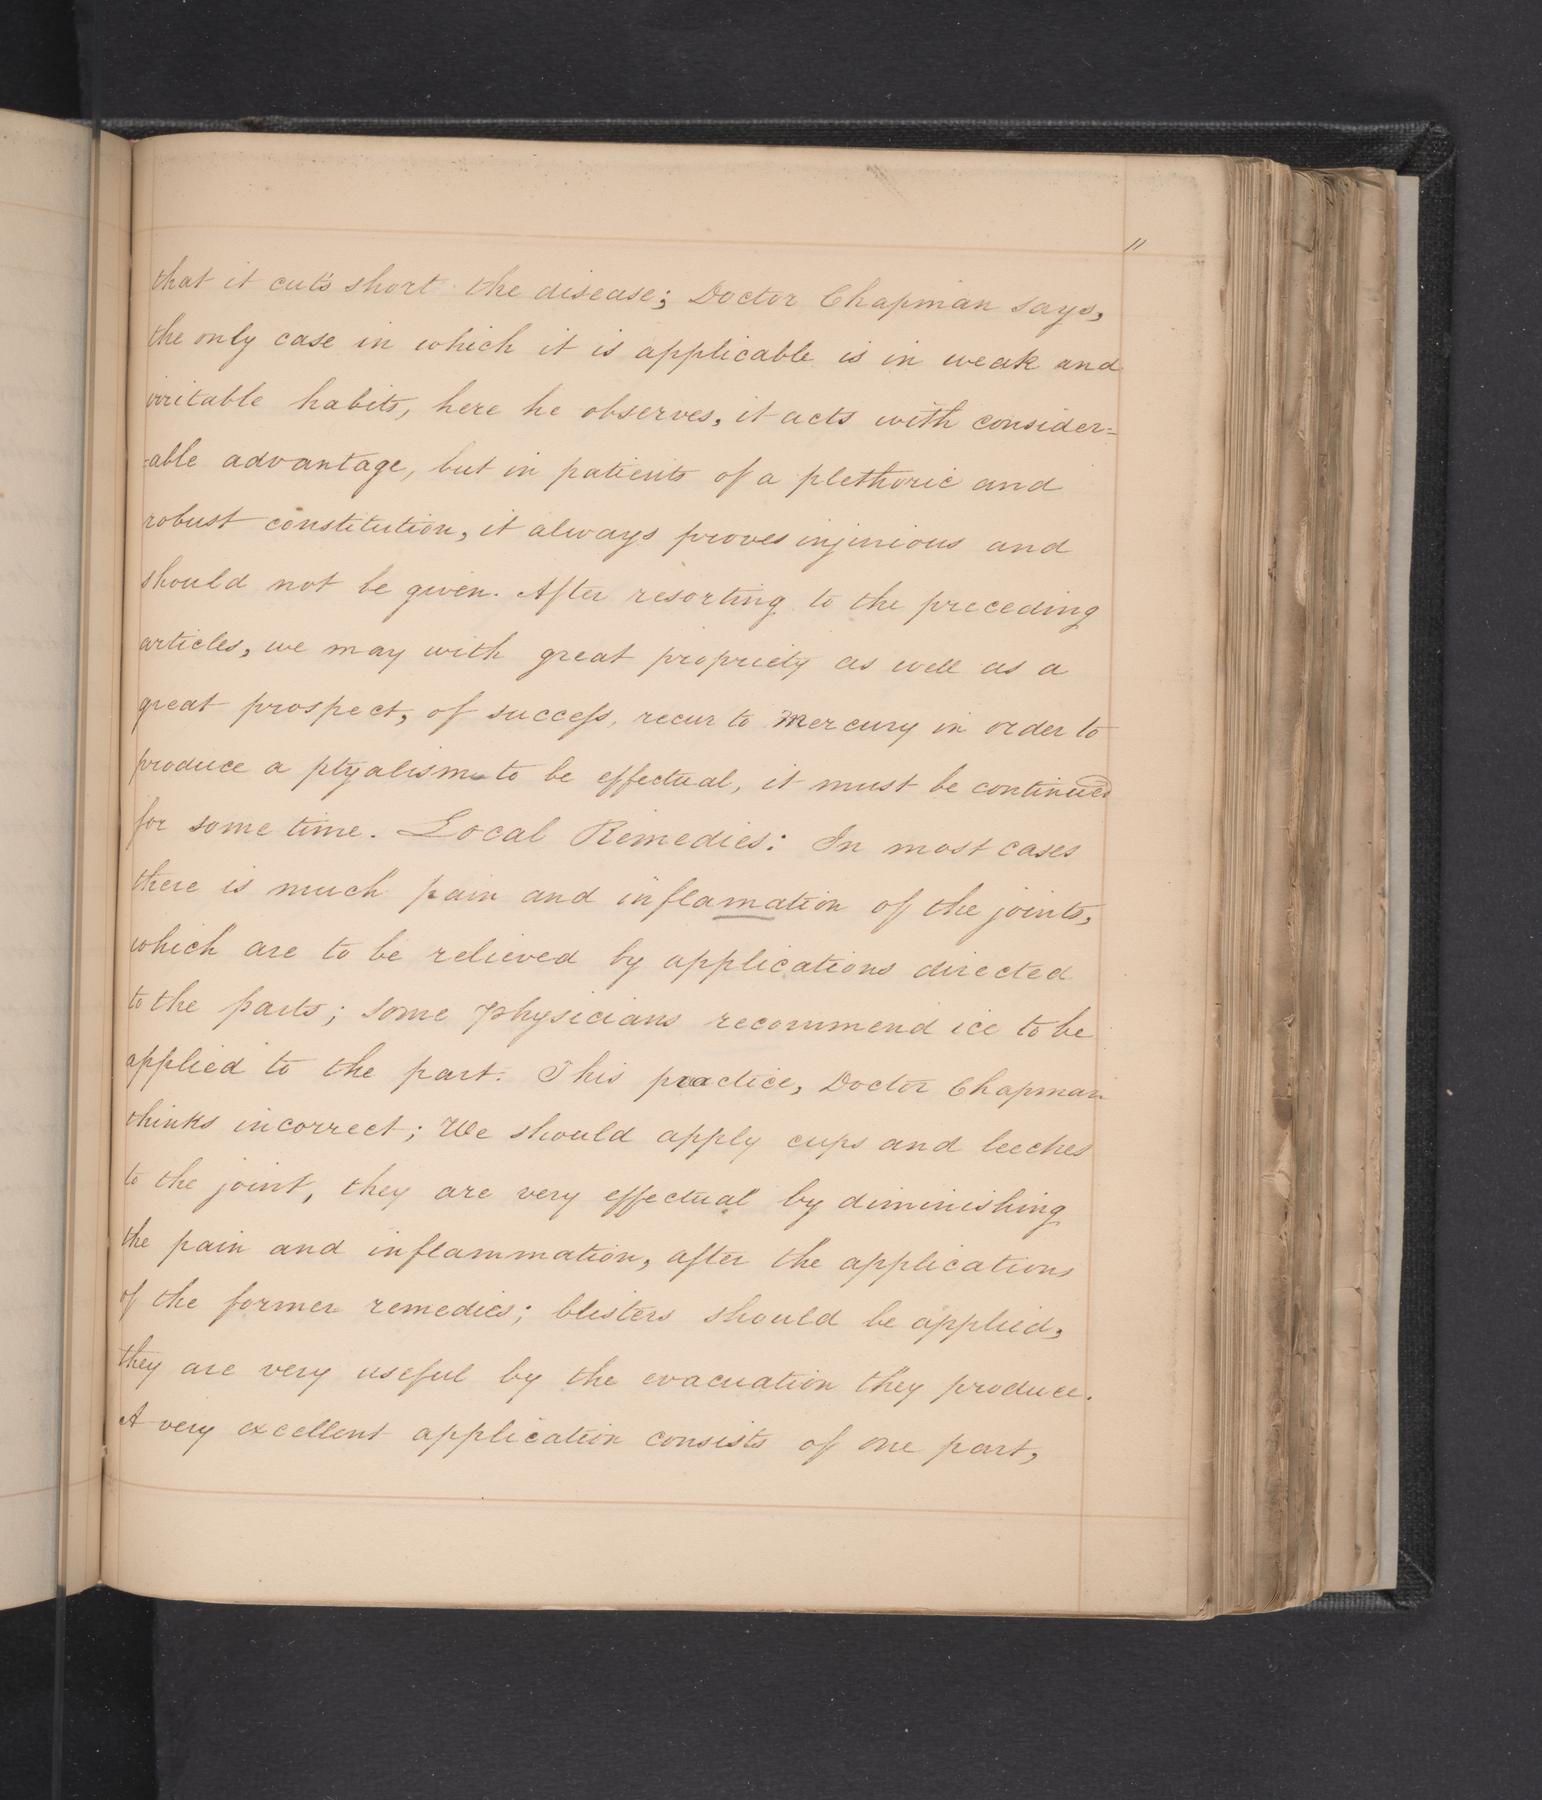 11
that it cuts short the disease; Doctor Chapman says,
the only case in which it is applicable is in weak and
irritable habits, here he observes, it acts with consider=
=able advantage, but in patients of a plethoric and
robust constitution, it always proves injurious and
should not be given. After resorting to the preceding
articles, we may with great propriety as well as a
great prospect, of success, recur to Mercury in order to
produce a ptyalism to be effectual, it must be continued
for some time. Local Remedies: In most cases
there is much pain and inflamation of the joints,
which are to be relieved by applications directed
to the parts; some Physicians recommend ice to be
applied to the part. This practice, Doctor Chapman
thinks incorrect; We should apply cups and leeches
to the joint, they are very effectual by diminishing
the pain and inflammation, after the applications
of the former remedies; blisters should be applied,
they are very useful by the evacuation they produce.
A very excellent application consists of one part,